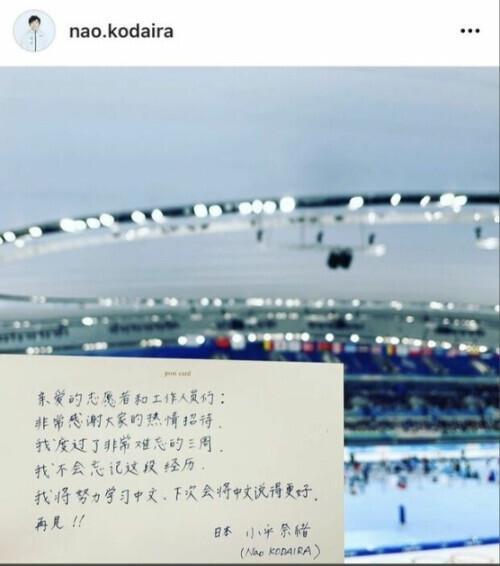 nao.kodaira
post card
亲爱的志愿者和工作人员们:
非常感谢大家的热情招待.
我度过了非常难忘的三周
我不会忘记这段经历.
我将努力学习中文、下次会将中文说得更好.
再見!!
日本 小平奈緒
(Nao KODAIRA)